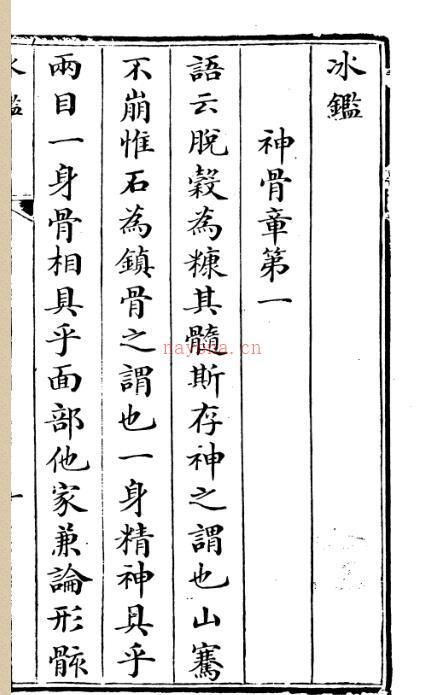 冰鑑
神骨章第一
語云脫穀為糠其髓斯存神之謂也山騫
不崩惟石為鎮骨之謂也一身精神具乎
兩目一身骨相具乎面部他家兼論形骸
nayona.cn